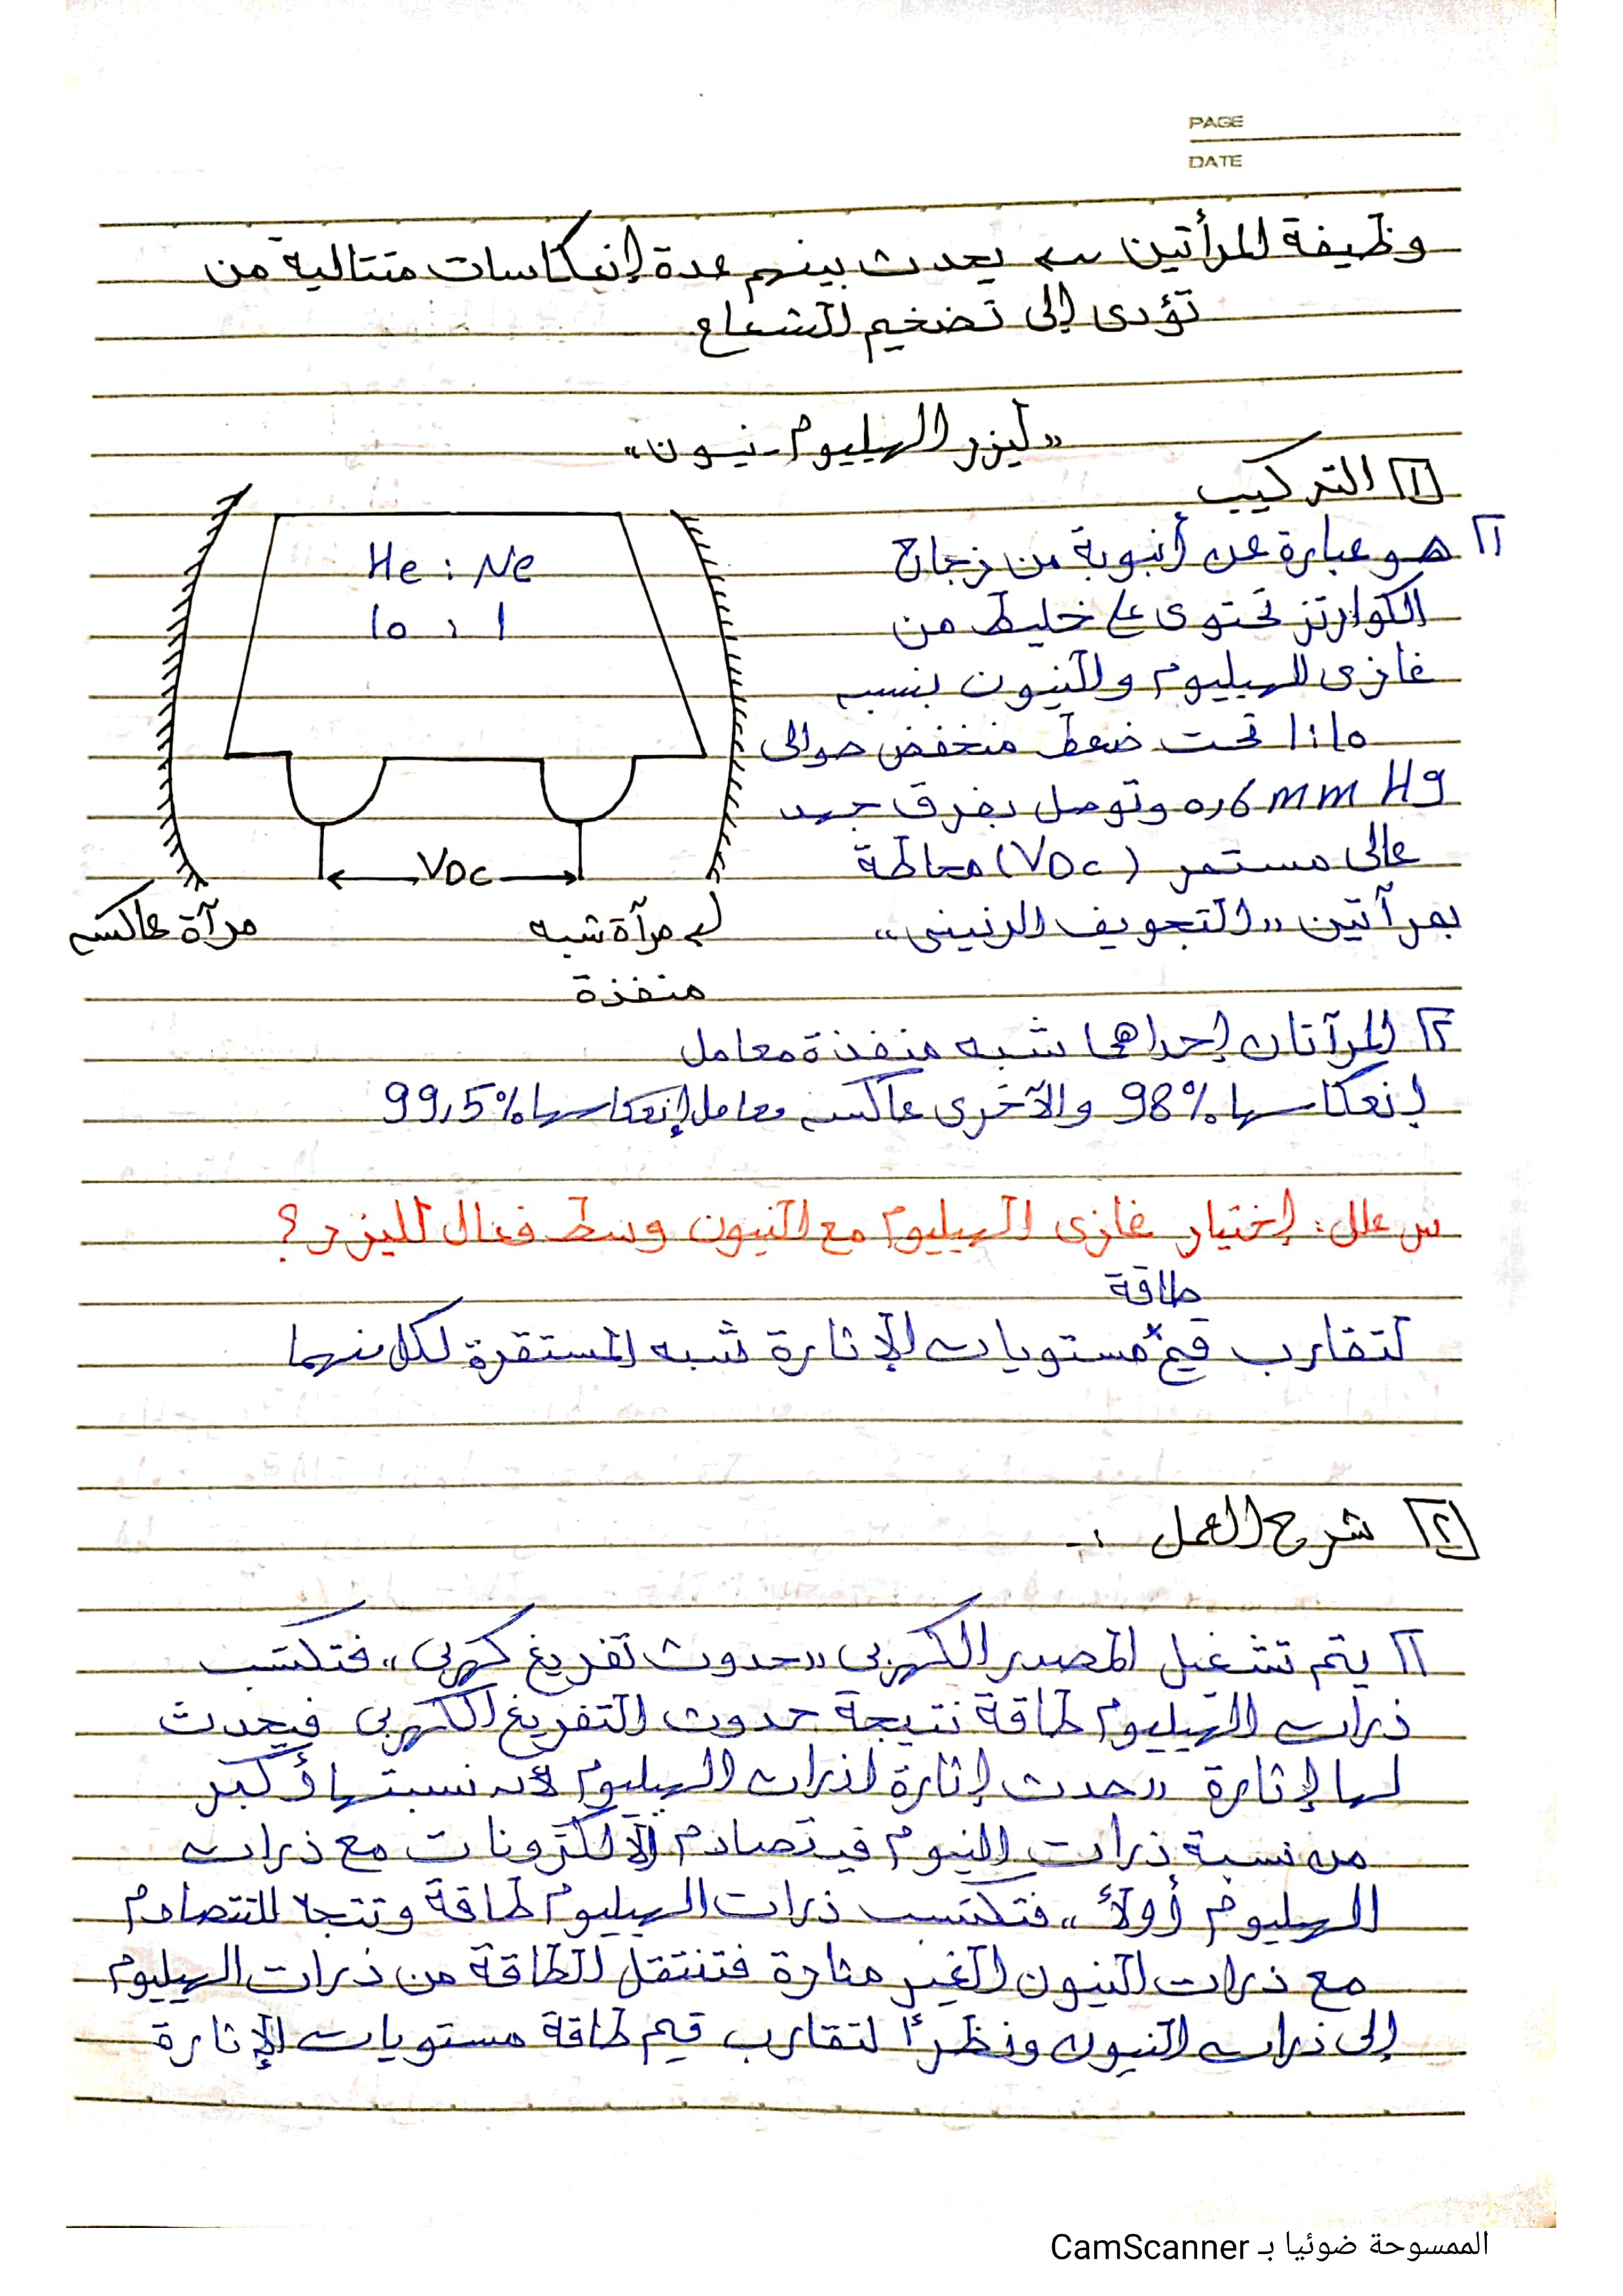 PAGE
DATE
وظيفة المرأتين ← يحدث بينهم عدة إنعكاسات متتالية من
تؤدى إلى تضخيم الشعاع
"ليزر الهيليوم-نيون"
[1] التركيب
He : Ne
10 : 1
VDC
مرآة عاكسه
مرآة شبه
منفذة
1 هو عبارة عن أنبوبة من زجاج
الكوارتز تحتوى على خليط من
غازى الهيليوم والنيون بنسبه
10:1 تحت ضغط منخفض حوالى
0,6 mm Hg وتوصل بفرق جهد
عالى مستمر (VDC) محاطة
بمرآتين "التجويف الرنينى"
٢ المرآتان إحداهما شبه منفذة معامل
إنعكاسها 98% والآخرى عاكسه معامل إنعكاسها 99,5%
س علل: إختيار غازى الهيليوم مع النيون وسط فعال لليزر؟
طاقة
لتقارب قيم مستويات الإثارة شبه المستقرة لكل منهما
[٢] شرح العمل :-
1 يتم تشغيل المصدر الكهربى "حدوث تفريغ كهربى" فتكتسب
ذرات الهيليوم طاقة نتيجة حدوث التفريغ الكهربى فيحدث
لها إثارة "حدث إثارة لذرات الهيليوم لأنه نسبتها أكبر
من نسبة ذرات النيوم فيتصادم الالكترونات مع ذرات
الهيليوم أولاً" فتكتسب ذرات الهيليوم طاقة وتتجه للتصادم
مع ذرات النيون الغير مثارة فتنتقل الطاقة من ذرات الهيليوم
إلى ذرات النيون ونظرًا لتقارب قيم طاقة مستويات الإثارة
الممسوحة ضوئيا بـ CamScanner